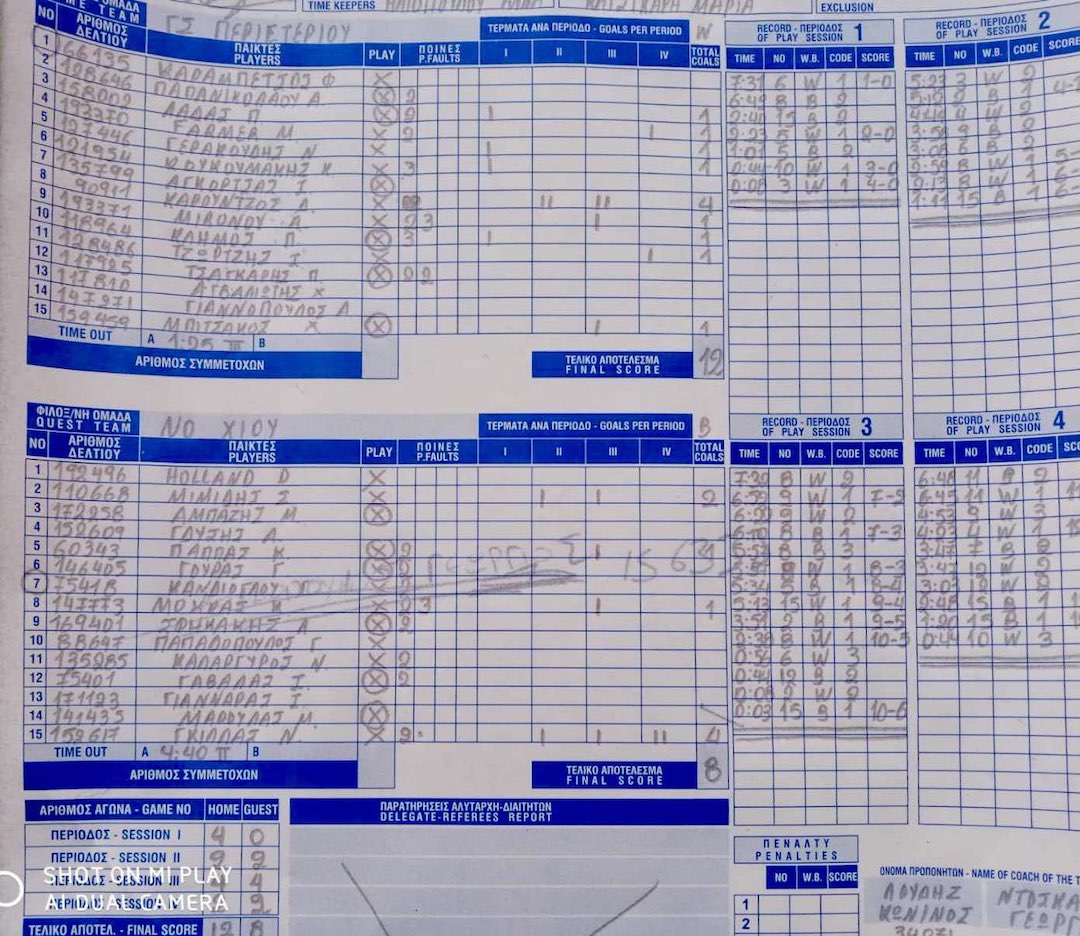 TIME KEEPERS
ΜΑΡΙΑ
EXCLUSION
ΟΜΑΔΑ
ΓΣ ΠΕΡΙΣΤΕΡΙΟΥ
ΤΕΡΜΑΤΑ ΑΝΑ ΠΕΡΙΟΔΟ - GOALS PER PERIOD W
NO ΑΡΙΘΜΟΣ ΔΕΛΤΙΟΥ ΠΑΙΚΤΕΣ PLAYERS PLAY ΠΟΙΝΕΣ P.FAULTS I II III IV TOTAL COALS
1 166135 ΚΑΡΑΜΠΕΤΣΟΣ Φ X
2 128646 ΠΑΠΑΝΙΚΟΛΑΟΥ Α X 2
3 158002 ΛΑΔΑΣ Π X 2 I 1
4 193370 FARMER M X 2 I 1
5 127446 ΓΕΡΑΚΟΥΔΗΣ Ν X I 1
6 121954 ΚΟΥΚΟΥΜΑΚΗΣ Κ X 3 I 1
7 135799 ΑΓΚΟΡΤΣΑΣ Ι X
8 90911 ΚΑΡΟΥΝΤΖΟΣ Δ X II II 4
9 193371 ΜΙΡΟΝΟΥ Α X 2 3 I 1
10 118964 ΚΛΗΜΟΣ Π X 3 I 1
11 128486 ΤΖΩΡΤΖΗΣ Ι X I 1
12 117925 ΤΣΑΓΚΑΡΗΣ Π X 2 2
13 117810 ΑΓΒΑΛΙΩΤΗΣ Χ
14 147271 ΓΙΑΝΝΟΠΟΥΛΟΣ Α
15 159459 ΜΠΙΤΣΑΚΟΣ Χ X I 1
TIME OUT A 1:25 III B
ΑΡΙΘΜΟΣ ΣΥΜΜΕΤΟΧΩΝ
ΤΕΛΙΚΟ ΑΠΟΤΕΛΕΣΜΑ FINAL SCORE 12
RECORD - ΠΕΡΙΟΔΟΣ OF PLAY SESSION 1
TIME NO W.B. CODE SCORE
7:31 6 W 1 1-0
6:49 8 B 2
2:40 15 B 2
2:23 5 W 1 2-0
1:01 5 B 2
0:44 10 W 1 3-0
0:08 3 W 1 4-0
RECORD - ΠΕΡΙΟΔΟΣ OF PLAY SESSION 2
TIME NO W.B. CODE SCORE
5:23 3 W 2
5:12 2 B 1
4:44 4 W 2
3:58 9 B 2
3:08 6 B 2
8 W 1
2:13 8 W 1
1:11 15 B 1
ΦΙΛΟΞ/ΝΗ ΟΜΑΔΑ QUEST TEAM
ΝΟ ΧΙΟΥ
ΤΕΡΜΑΤΑ ΑΝΑ ΠΕΡΙΟΔΟ - GOALS PER PERIOD B
NO ΑΡΙΘΜΟΣ ΔΕΛΤΙΟΥ ΠΑΙΚΤΕΣ PLAYERS PLAY ΠΟΙΝΕΣ P.FAULTS I II III IV TOTAL COALS
1 192496 HOLLAND D X
2 110668 ΜΙΜΙΔΗΣ Σ X I I 2
3 172258 ΑΜΠΑΖΗΣ Μ X
4 152609 ΓΛΥΣΗΣ Α
5 60343 ΠΑΠΠΑΣ Κ X 2 I 1
6 146405 ΓΟΥΡΑΣ Γ X 2
7 75418 ΚΑΝΔΙΟΓΛΟΥ
8 147773 ΜΟΚΚΑΣ Κ X 2 3 I 1
9 169401 X 2
10 88647 ΠΑΠΑΔΟΠΟΥΛΟΣ Γ X
11 135285 ΚΑΛΑΡΓΥΡΟΣ Ν X 2
12 75401 ΓΑΒΑΛΑΣ Ι X 2
13 171123 ΓΙΑΝΝΑΡΑΣ Ι
14 141435 ΜΑΡΟΥΛΑΣ Μ X
15 159617 ΓΚΙΛΛΑΣ Ν X 2 I I II 4
TIME OUT A 4:40 II B
ΑΡΙΘΜΟΣ ΣΥΜΜΕΤΟΧΩΝ
ΤΕΛΙΚΟ ΑΠΟΤΕΛΕΣΜΑ FINAL SCORE 8
RECORD - ΠΕΡΙΟΔΟΣ OF PLAY SESSION 3
TIME NO W.B. CODE SCORE
7:39 8 W 2
6:59 9 W 1 7-2
6:29 9 W 2
6:10 8 B 1 7-3
5:57 8 B 3
W 1 8-3
5:34 5 B 1 8-4
5:13 15 W 1 9-4
3:51 2 B 1 9-5
0:58 8 W 1 10-5
0:56 6 W 3
0:44 12 B 2
0:08 2 W 2
0:03 15 B 1 10-6
RECORD - ΠΕΡΙΟΔΟΣ OF PLAY SESSION 4
TIME NO W.B. CODE
6:48 11 B 2
6:45 11 W 1
4:53 9 W 3
4:03 4 W 1
3:47 7 B 2
3:47 12 W 2
3:03 12 W 2
2:48 15 B 1
1:20 15 B 1
0:44 10 W 3
ΑΡΙΘΜΟΣ ΑΓΩΝΑ - GAME NO HOME GUEST
ΠΕΡΙΟΔΟΣ - SESSION I 4 0
ΠΕΡΙΟΔΟΣ - SESSION II 2 2
ΠΕΡΙΟΔΟΣ - SESSION III 4 4
2 2
ΤΕΛΙΚΟ ΑΠΟΤΕΛ. - FINAL SCORE 12 8
ΠΑΡΑΤΗΡΗΣΕΙΣ ΑΛΥΤΑΡΧΗ-ΔΙΑΙΤΗΤΩΝ
DELEGATE-REFEREES REPORT
ΠΕΝΑΛΤΥ PENALTIES
NO W.B. SCORE
1
2
ΟΝΟΜΑ ΠΡΟΠΟΝΗΤΩΝ - NAME OF COACH OF THE
ΛΟΥΔΗΣ
ΚΩΝΙΝΟΣ
34071
ΝΤΟΣΚΑ
ΓΕΩΡΓ
SHOT ON MI PLAY
AI DUAL CAMERA